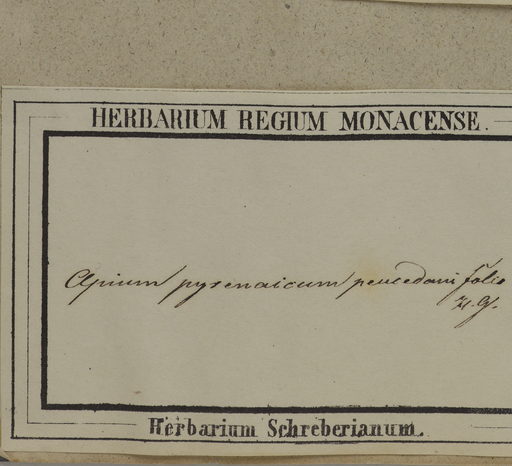 HERBARIUM REGIUM MONACENSE.
Apium pyrenaicum peucedani folio
Herbarium Schreberianum.